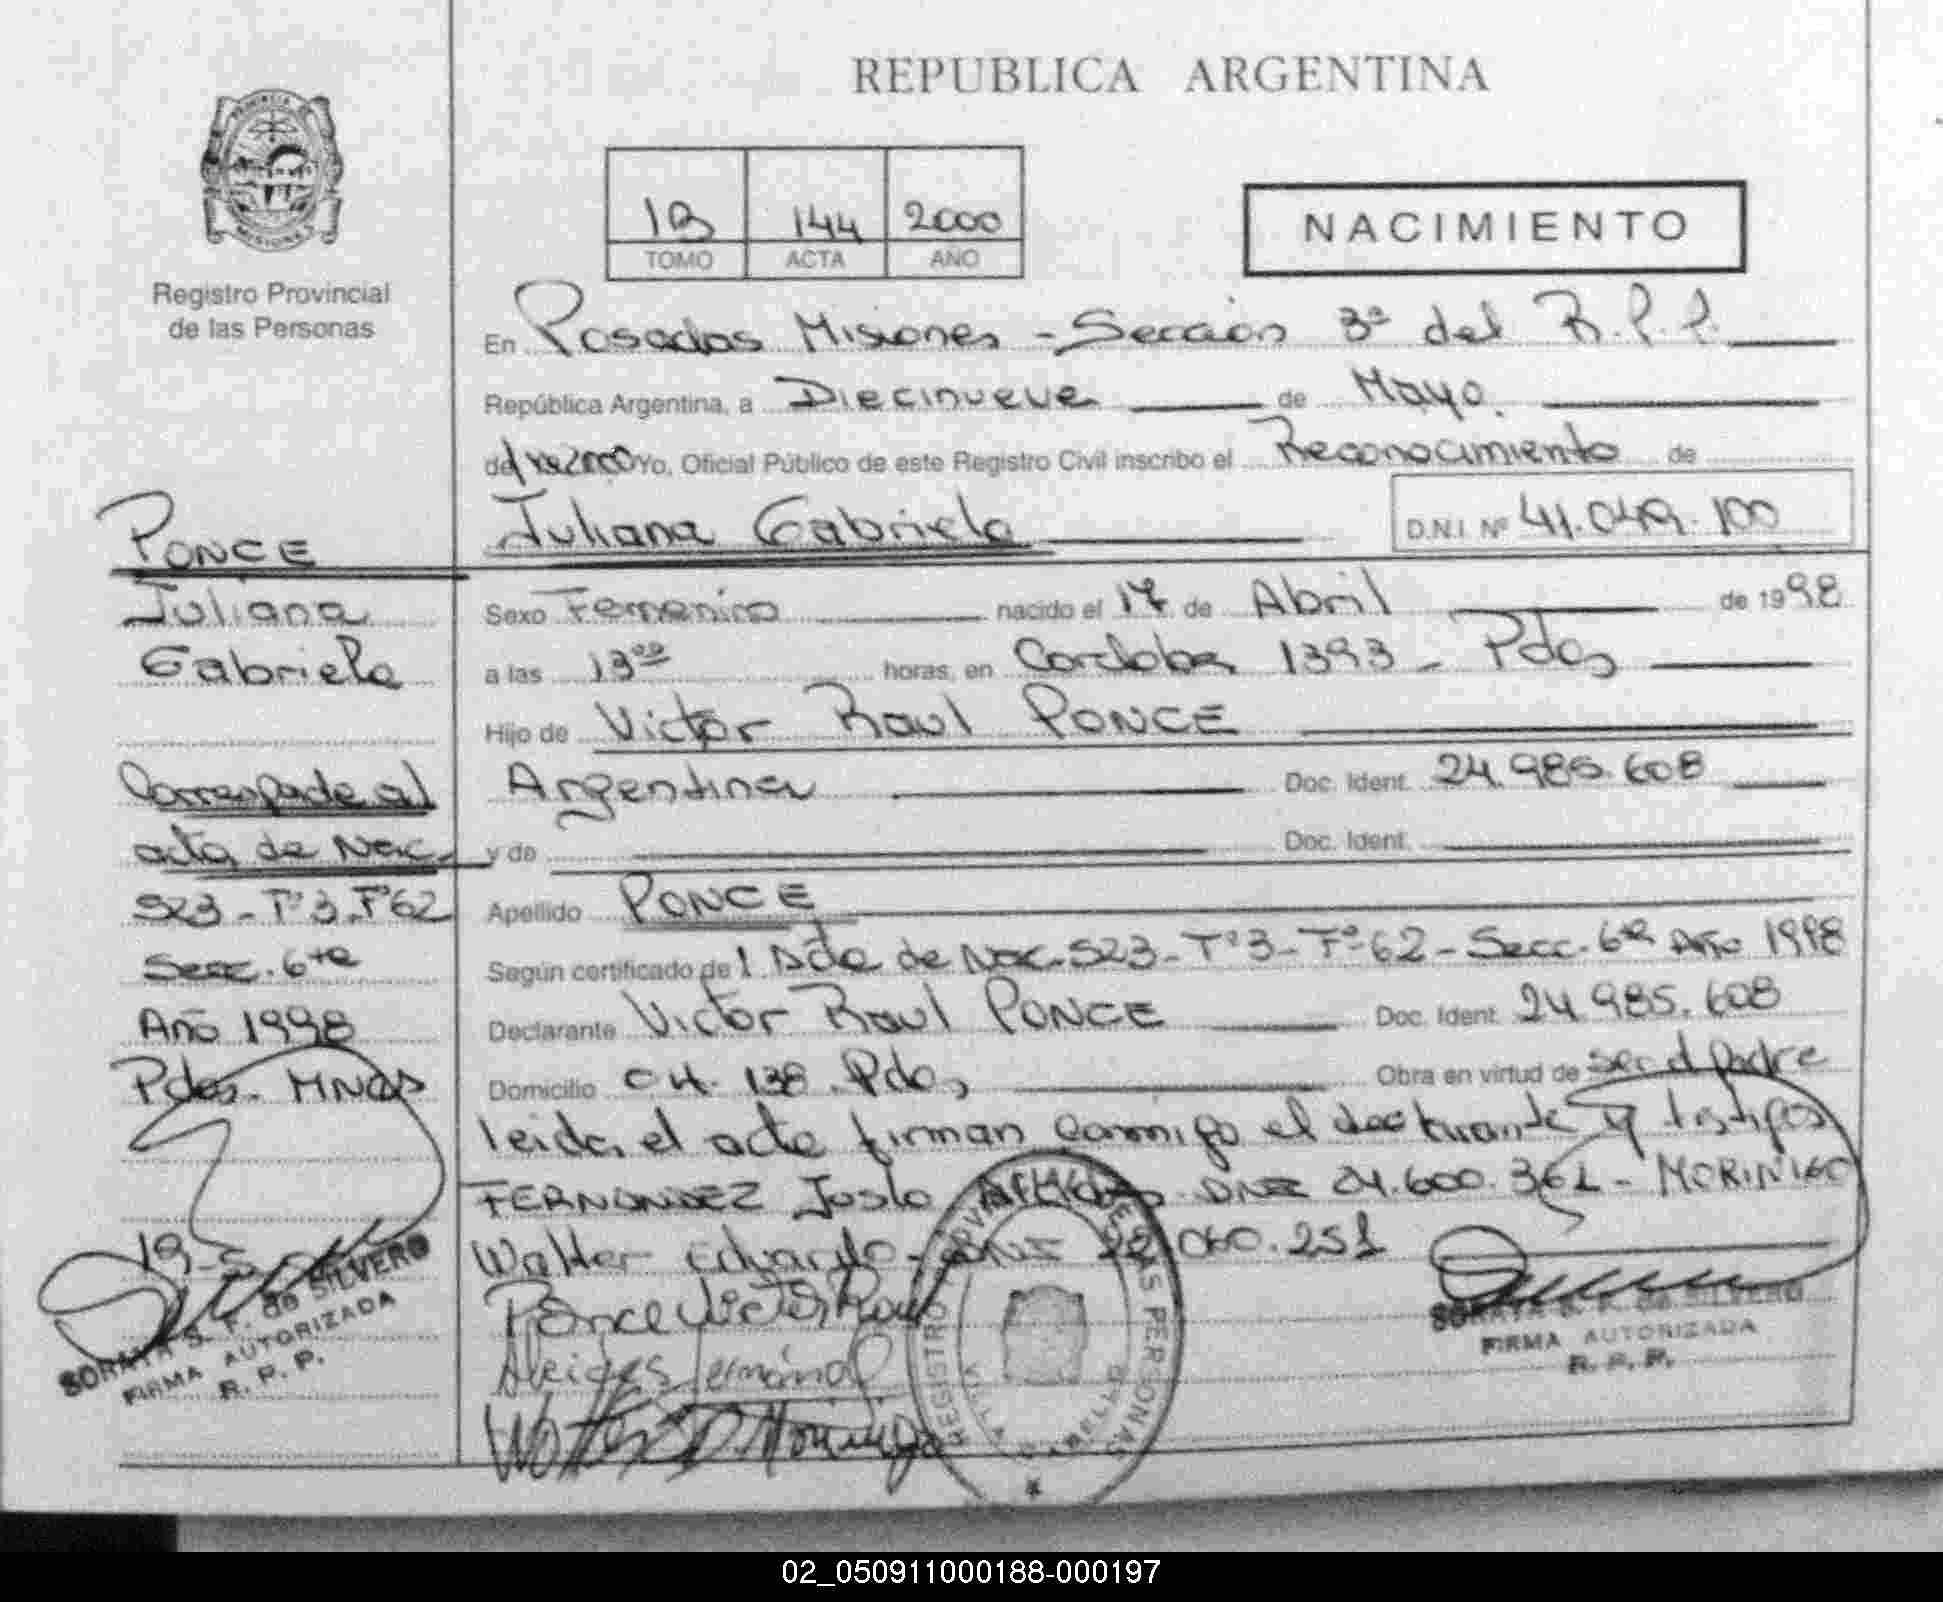 REPUBLICA ARGENTINA
PROVINCIA DE
MISIONES
Registro Provincial
de las Personas
1B 144 2000
TOMO ACTA AÑO
NACIMIENTO
En Posadas Misiones - Sección 3ª del R.P.P.
República Argentina, a Diecinueve de Mayo
de 2000 Yo, Oficial Público de este Registro Civil inscribo el Reconocimiento de
Juliana Gabriela D.N.I. Nº 41.049.100
PONCE
Juliana
Gabriela
Corresponde al
acta de Nac.
523 - Tº 3 - Fº 62
Secc. 6ta
Año 1998
Pdas. MNES
19-5
SORAYA S. F. de SILVERO
FIRMA AUTORIZADA
R. P. P.
Sexo Femenino nacido el 17 de Abril de 1998
a las 13ºº horas, en Cordoba 1393 - Pdas
Hijo de Victor Raul PONCE
Argentina Doc. Ident. 24.985.608
y de Doc. Ident.
Apellido PONCE
Según certificado de Acta de Nac. 523 - Tº 3 - Fº 62 - Secc. 6ta Año 1998
Declarante Victor Raul PONCE Doc. Ident. 24.985.608
Domicilio CH. 138. Pdas Obra en virtud de ser el padre
leida el acta firman conmigo el declarante y testigos
FERNANDEZ Justo DNI 24.600.361 - MORINIGO
Walter Eduardo - DNI 22.060.251
Ponce Victor Raul
Alcides Fernández
Walter E Morinigo
REGISTRO PROVINCIAL DE LAS PERSONAS
VILLA CABELLO
SORAYA S. F. de SILVERO
FIRMA AUTORIZADA
R. P. P.
02_050911000188-000197